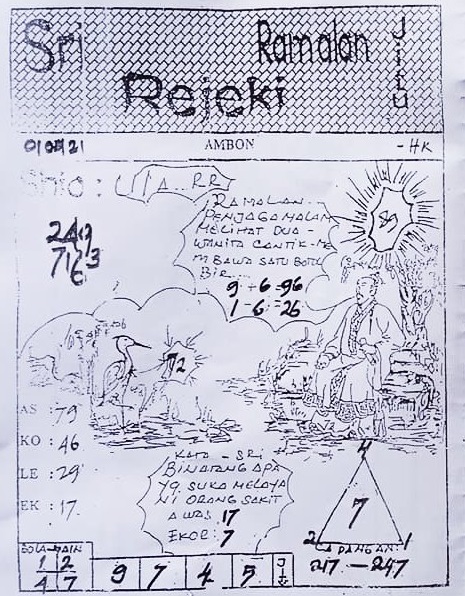 Sri
Ramalan
Jitu
Rejeki
AMBON
-HK
Shio :
RAMALAN..
PENJAGA MALAM
MELIHAT DUA -
WANITA CANTIK-ME
M BAWA SATU BOTOL
BIR...
9 - 6 = 96
1 - 6 = 26
72
AS : 79
KO : 46
LE : 29
EK : 17
KATA - SRI
BINATANG APA
YG SUKA MELAYA
NI ORANG SAKIT
AWAS: 17
EKOR: 7
4
7
2 1
LAPANGAN:
217 - 247
BOLA MAIN
1 2
4 7
9 7 4 5